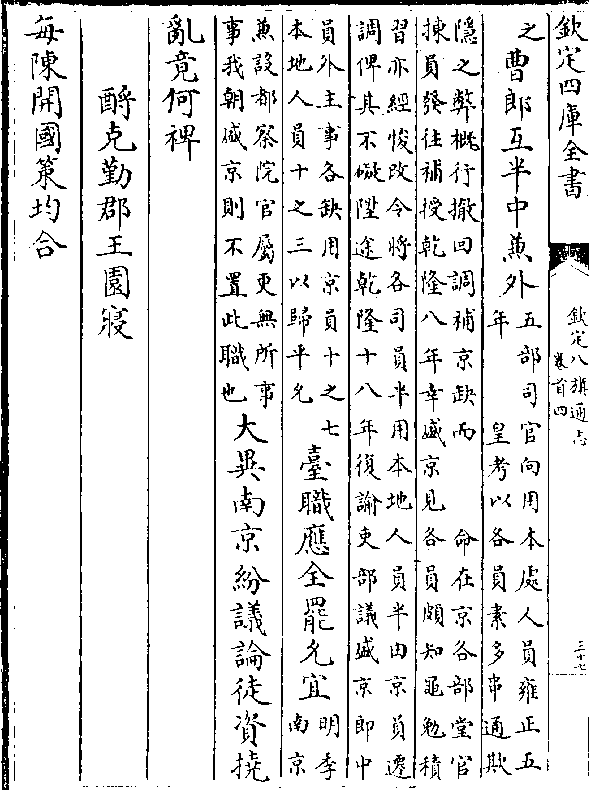 欽定四庫全書
欽定八旗通志
卷首四
三十七
之
曹郎互半中兼外
五部司官向用本處人員雍正五
年 皇考以各員素多串通欺
隱之弊概行撤回調補京缺而 命在京各部堂官
揀員發往補授乾隆八年幸盛京見各員頗知黽勉積
習亦經悛改今將各司員半用本地人員半由京員遷
調俾其不礙陞途乾隆十八年復諭吏部議盛京郎中
員外主事各缺用京員十之七
本地人員十之三以歸平允
臺職應全罷允宜
明季
南京
兼設都察院官屬更無所事
事我朝盛京則不置此職也
大異南京紛議論徒資撓
亂竟何裨
酹克勤郡王園寢
每陳開國策均合